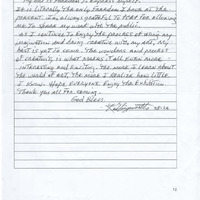 my art is freedom to express myself.
It is literally the only freedom I have at the
present. I'm always grateful to PCAP for allowing
me to share my work with the public.
As I continue to enjoy the process of using my
imagination and being creative with my art, my
best is yet to come. The wonders and process
of creativity is what makes it all even more
interesting and exciting. The more I learn about
the world of art, the more I realize how little
I know. Hope everyone enjoy the exhibition
Thank you all for coming.
God Bless.
12